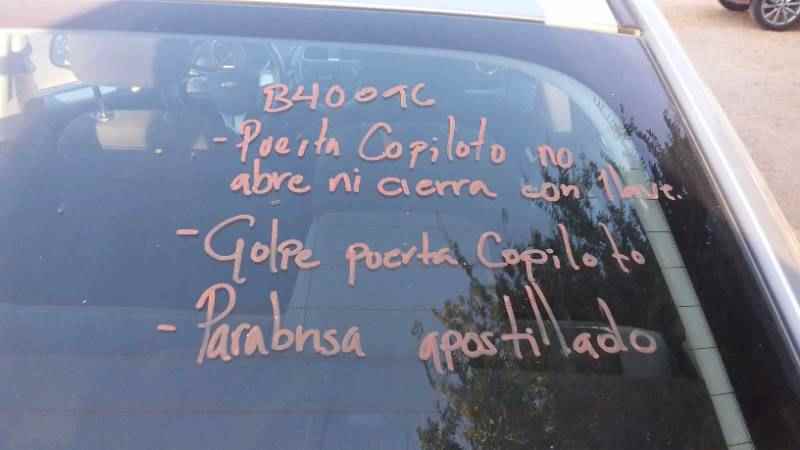 B4009C
- Puerta Copiloto no
abre ni cierra con llave.
- Golpe puerta Copiloto
- Parabrisa apostillado